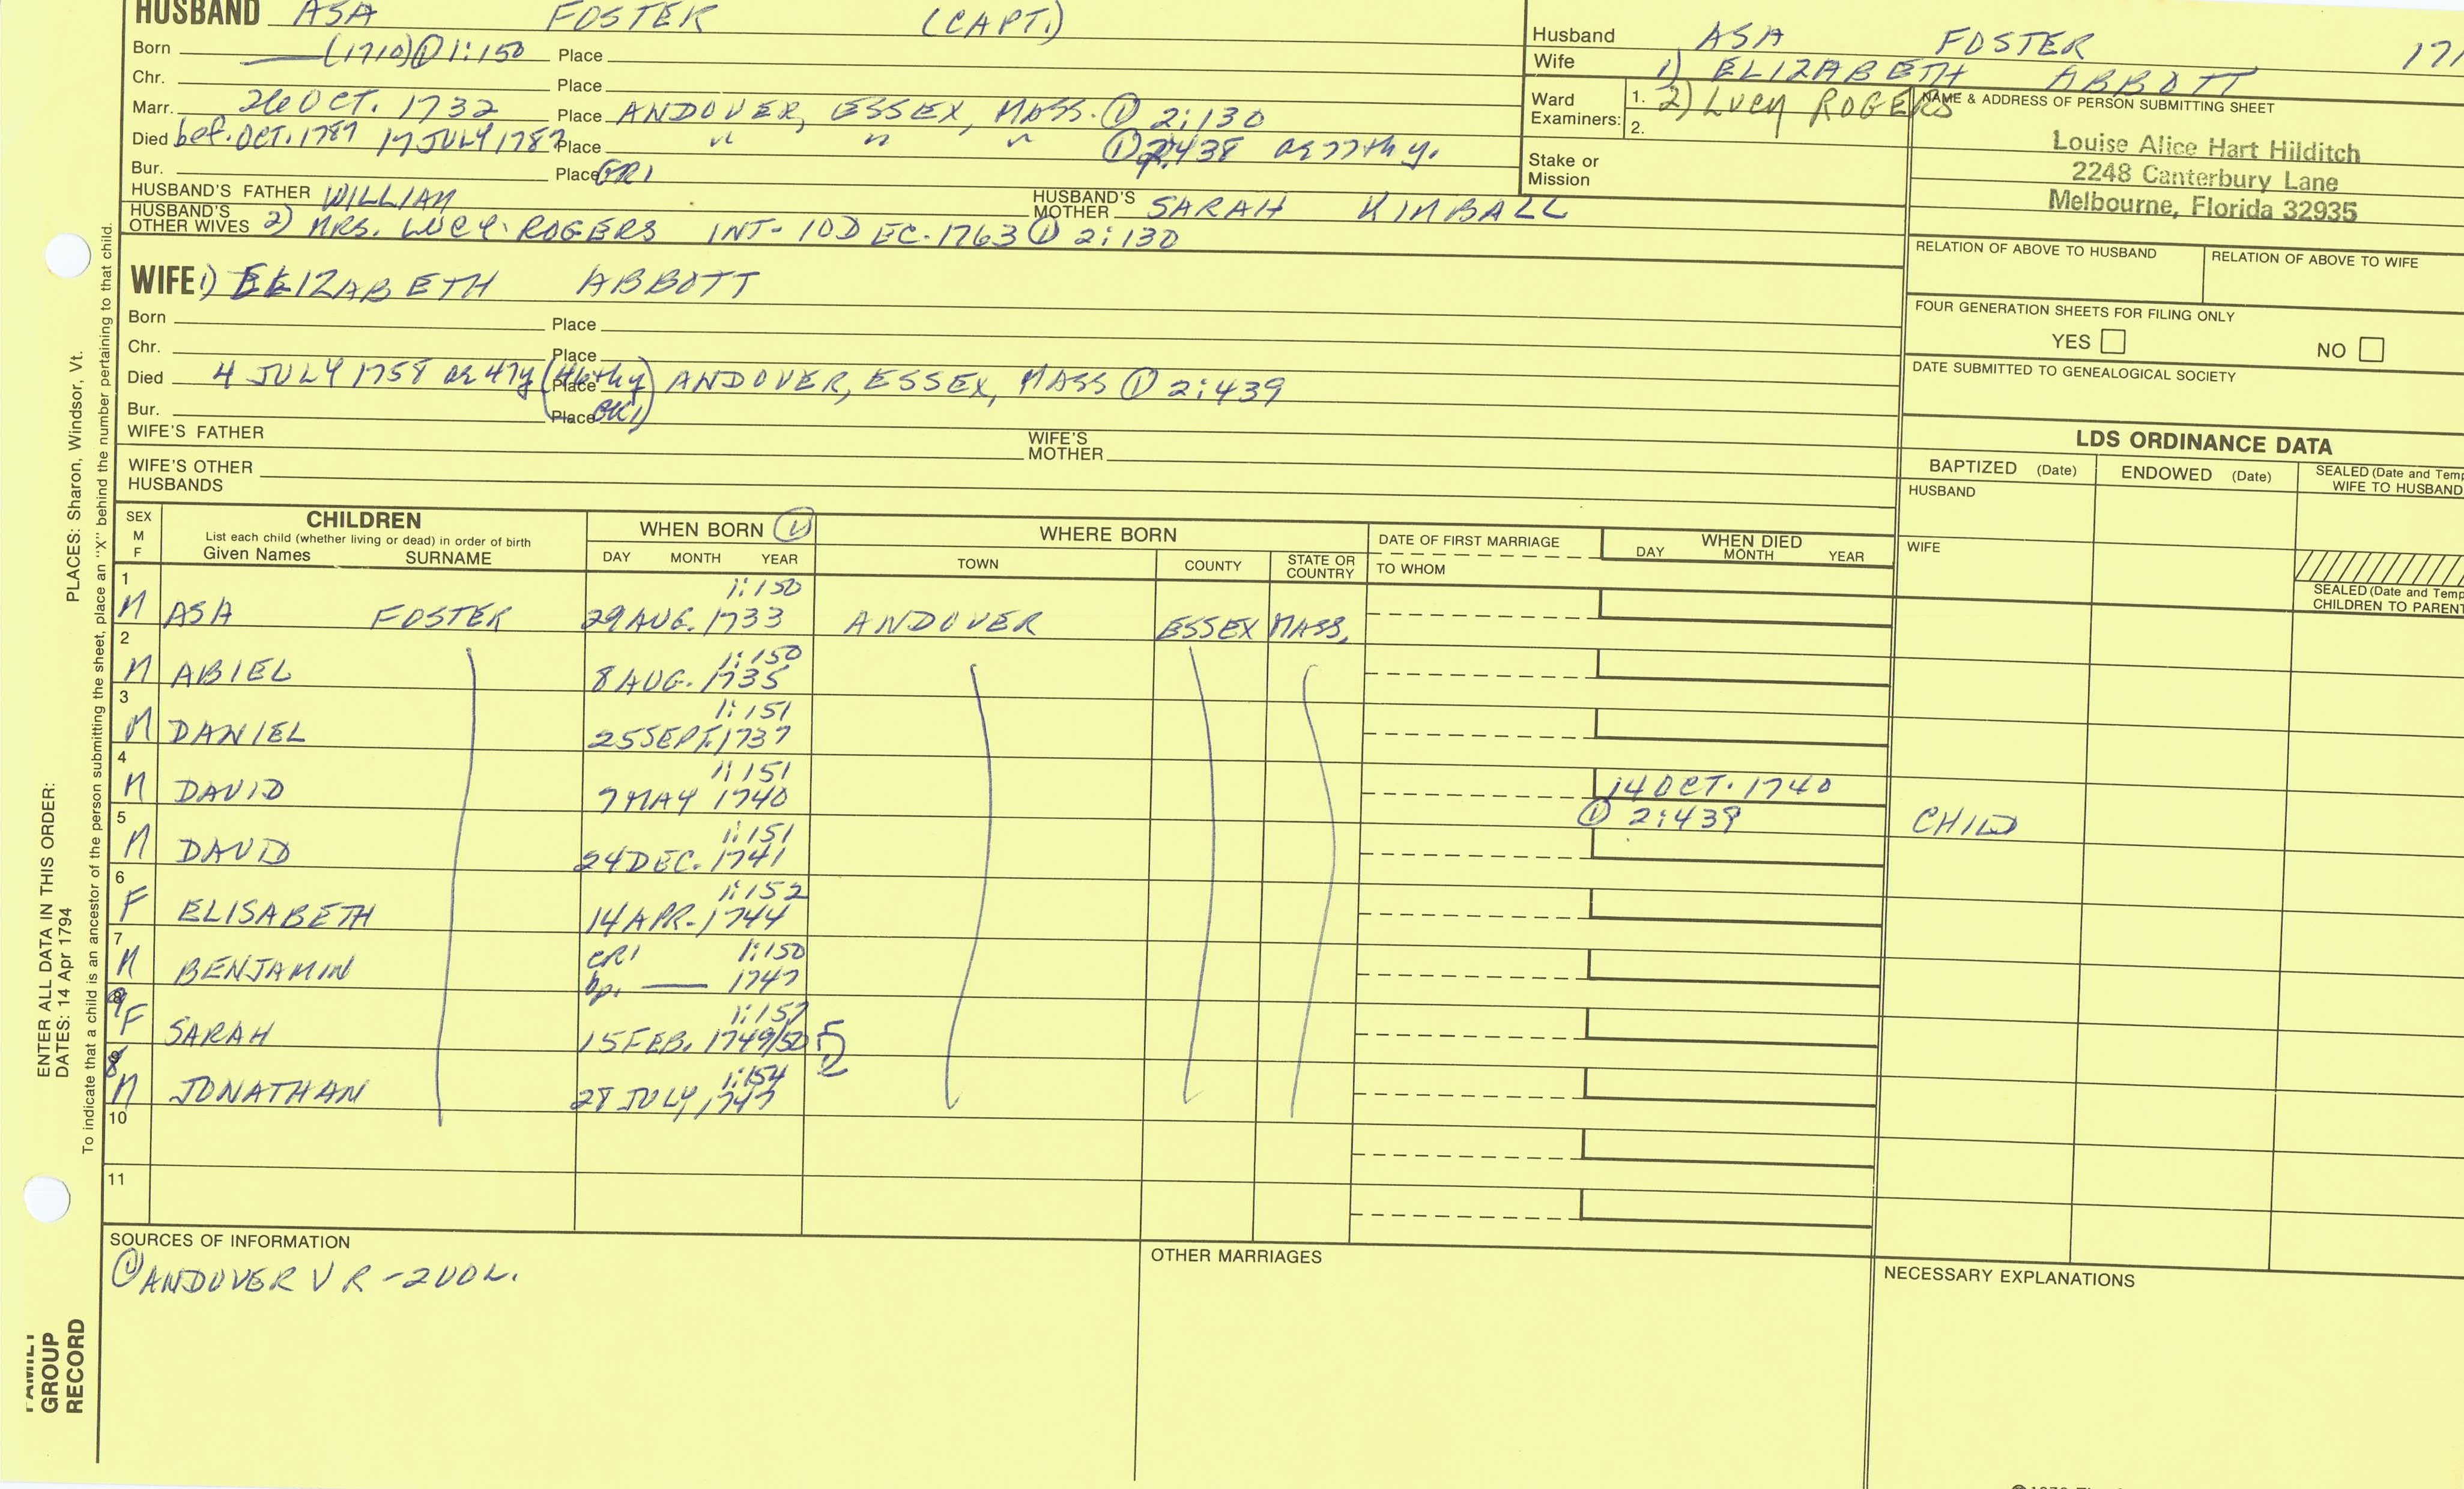 HUSBAND ASA FOSTER (CAPT.)
Born (1710) ① 1:150 Place
Chr. Place
Marr. 26 OCT. 1732 Place ANDOVER, ESSEX, MASS. ① 2:130
Died bef. OCT. 1787 17 JULY 1787 Place " " " ① 2:438 ae 77th y.
Bur. Place GR1
HUSBAND'S FATHER WILLIAM HUSBAND'S MOTHER SARAH KIMBALL
HUSBAND'S OTHER WIVES 2) MRS. LUCY ROGERS INT- 10 DEC. 1763 ① 2:130
WIFE 1) ELIZABETH ABBOTT
Born Place
Chr. Place
Died 4 JULY 1758 ae 47y (48th y Place GR1) ANDOVER, ESSEX, MASS ① 2:439
Bur. Place
WIFE'S FATHER WIFE'S MOTHER
WIFE'S OTHER HUSBANDS
Husband ASA FOSTER 171
Wife 1) ELIZABETH ABBOTT
Ward Examiners: 1. 2) LUCY ROGERS
2.
Stake or Mission
NAME & ADDRESS OF PERSON SUBMITTING SHEET
Louise Alice Hart Hilditch
2248 Canterbury Lane
Melbourne, Florida 32935
RELATION OF ABOVE TO HUSBAND RELATION OF ABOVE TO WIFE
FOUR GENERATION SHEETS FOR FILING ONLY
YES NO
DATE SUBMITTED TO GENEALOGICAL SOCIETY
LDS ORDINANCE DATA
BAPTIZED (Date) ENDOWED (Date) SEALED (Date and Temp
WIFE TO HUSBAND
HUSBAND
WIFE
SEALED (Date and Temp
CHILDREN TO PARENT
SEX M F CHILDREN WHEN BORN ① WHERE BORN DATE OF FIRST MARRIAGE WHEN DIED
List each child (whether living or dead) in order of birth
Given Names SURNAME DAY MONTH YEAR TOWN COUNTY STATE OR COUNTRY TO WHOM DAY MONTH YEAR
1 1:150
M ASA FOSTER 29 AUG. 1733 ANDOVER ESSEX MASS.
2 1:150
M ABIEL 8 AUG. 1735
3 1:151
M DANIEL 25 SEPT. 1737
4 1:151
M DAVID 7 MAY 1740 14 OCT. 1740
① 2:439 CHILD
5 1:151
M DAVID 24 DEC. 1741
6 1:152
F ELISABETH 14 APR. 1744
7 CR1 1:150
M BENJAMIN bp. — 1747
9 1:157
F SARAH 15 FEB. 1749/50
8 1:154
M JONATHAN 28 JULY 1747
10
11
SOURCES OF INFORMATION
① ANDOVER VR - 2 VOL.
OTHER MARRIAGES
NECESSARY EXPLANATIONS
ENTER ALL DATA IN THIS ORDER:
DATES: 14 Apr 1794
PLACES: Sharon, Windsor, Vt.
To indicate that a child is an ancestor of the person submitting the sheet, place an "X" behind the number pertaining to that child.
FAMILY
GROUP
RECORD